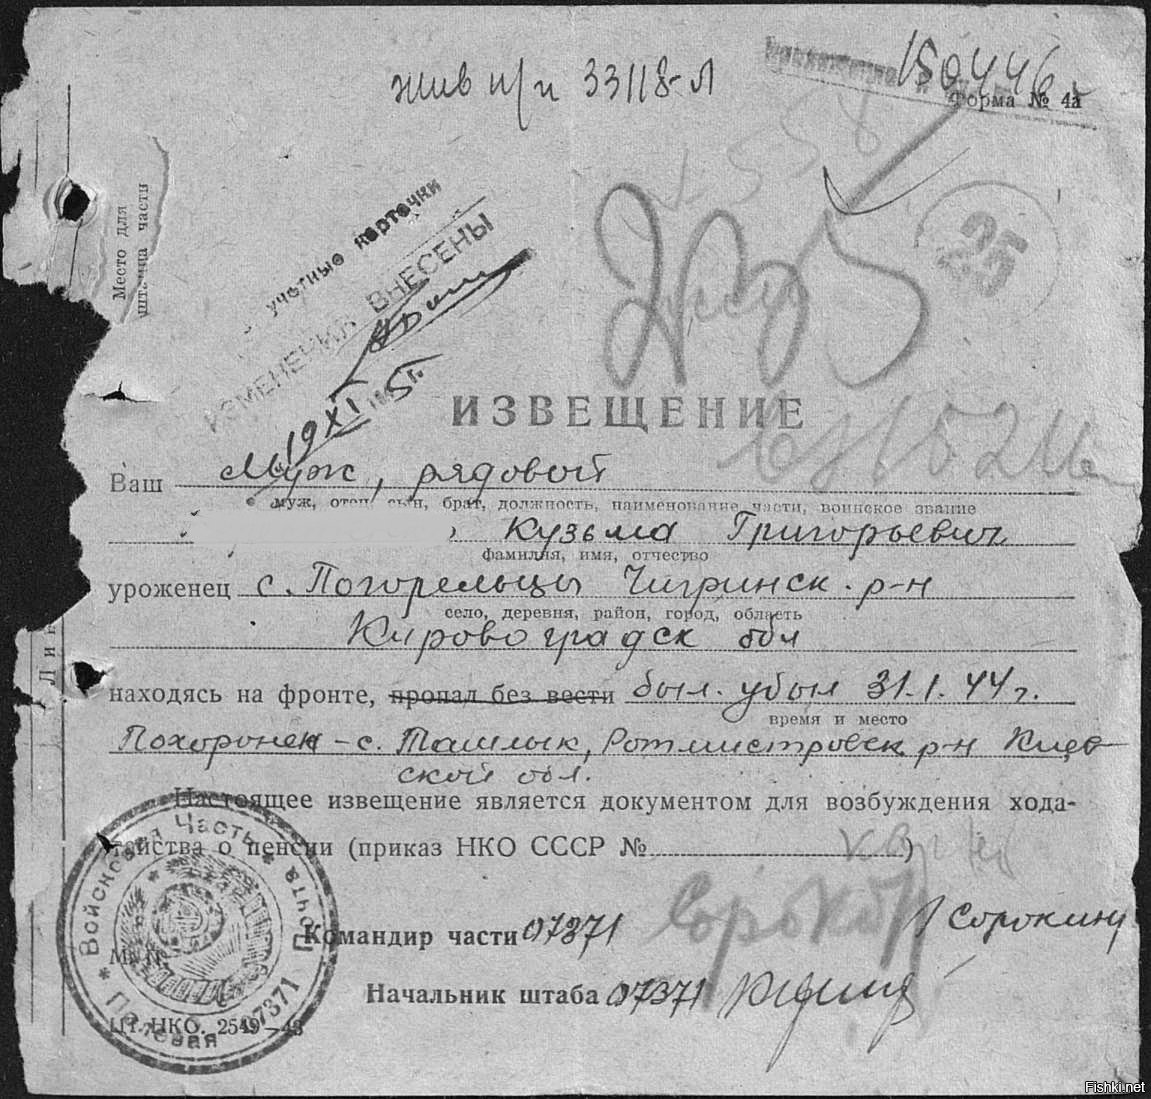 жив п/п 33118-Л
150446
Форма № 4а
Место для
штампа части
учетные карточки
ИЗМЕНЕНИЯ ВНЕСЕНЫ
19 XI 5 г.
25
ИЗВЕЩЕНИЕ
Ваш муж, рядовой
муж, отец, сын, брат, должность, наименование части, воинское звание
Кузьма Григорьевич
фамилия, имя, отчество
уроженец с. Погорельцы Чигринск. р-н
село, деревня, район, город, область
Кировоградск обл
находясь на фронте, пропал без вести был. убыл 31.1.44 г.
время и место
Похоронен - с. Ташлык, Ротмистровск р-н Киев
ской обл.
Настоящее извещение является документом для возбуждения хода-
тайства о пенсии (приказ НКО СССР № )
Войсковая Часть * Полевая Почта 07371 *
М. П.
Командир части 07371 Сорокин
Начальник штаба 07371
ЦТ. НКО. 2549—43
Fishki.net